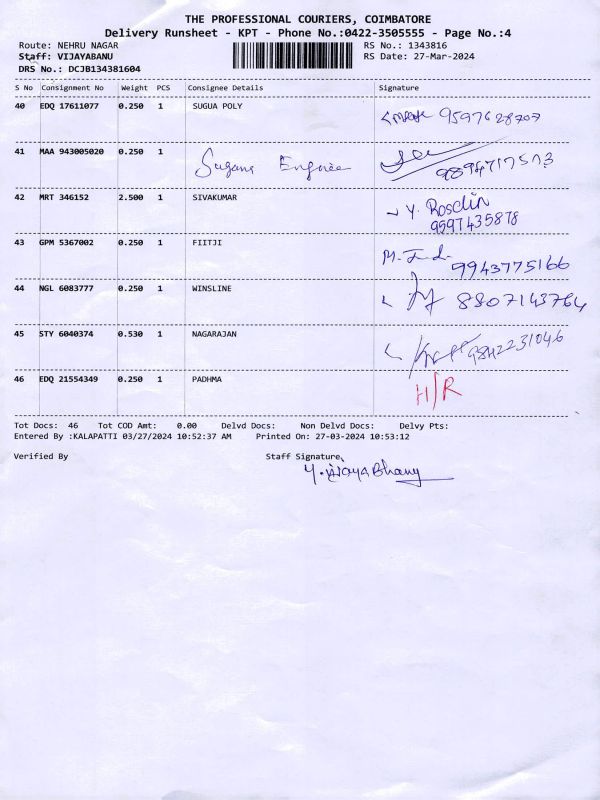 THE PROFESSIONAL COURIERS, COIMBATORE
Delivery Runsheet - KPT - Phone No.:0422-3505555 - Page No.:4
Route: NEHRU NAGAR RS No.: 1343816
Staff: VIJAYABANU RS Date: 27-Mar-2024
DRS No.: DCJB134381604
S No Consignment No Weight PCS Consignee Details Signature
40 EDQ 17611077 0.250 1 SUGUA POLY 9597628707
41 MAA 943005020 0.250 1 Suguna 9894717573
42 MRT 346152 2.500 1 SIVAKUMAR Y. Rosclin
9597435878
43 GPM 5367002 0.250 1 FIITJI 9943775166
44 NGL 6083777 0.250 1 WINSLINE 8807143764
45 STY 6040374 0.530 1 NAGARAJAN 9842231046
46 EDQ 21554349 0.250 1 PADHMA H/R
Tot Docs: 46 Tot COD Amt: 0.00 Delvd Docs: Non Delvd Docs: Delvy Pts:
Entered By :KALAPATTI 03/27/2024 10:52:37 AM Printed On: 27-03-2024 10:53:12
Verified By Staff Signature
Y. VijayaBhany